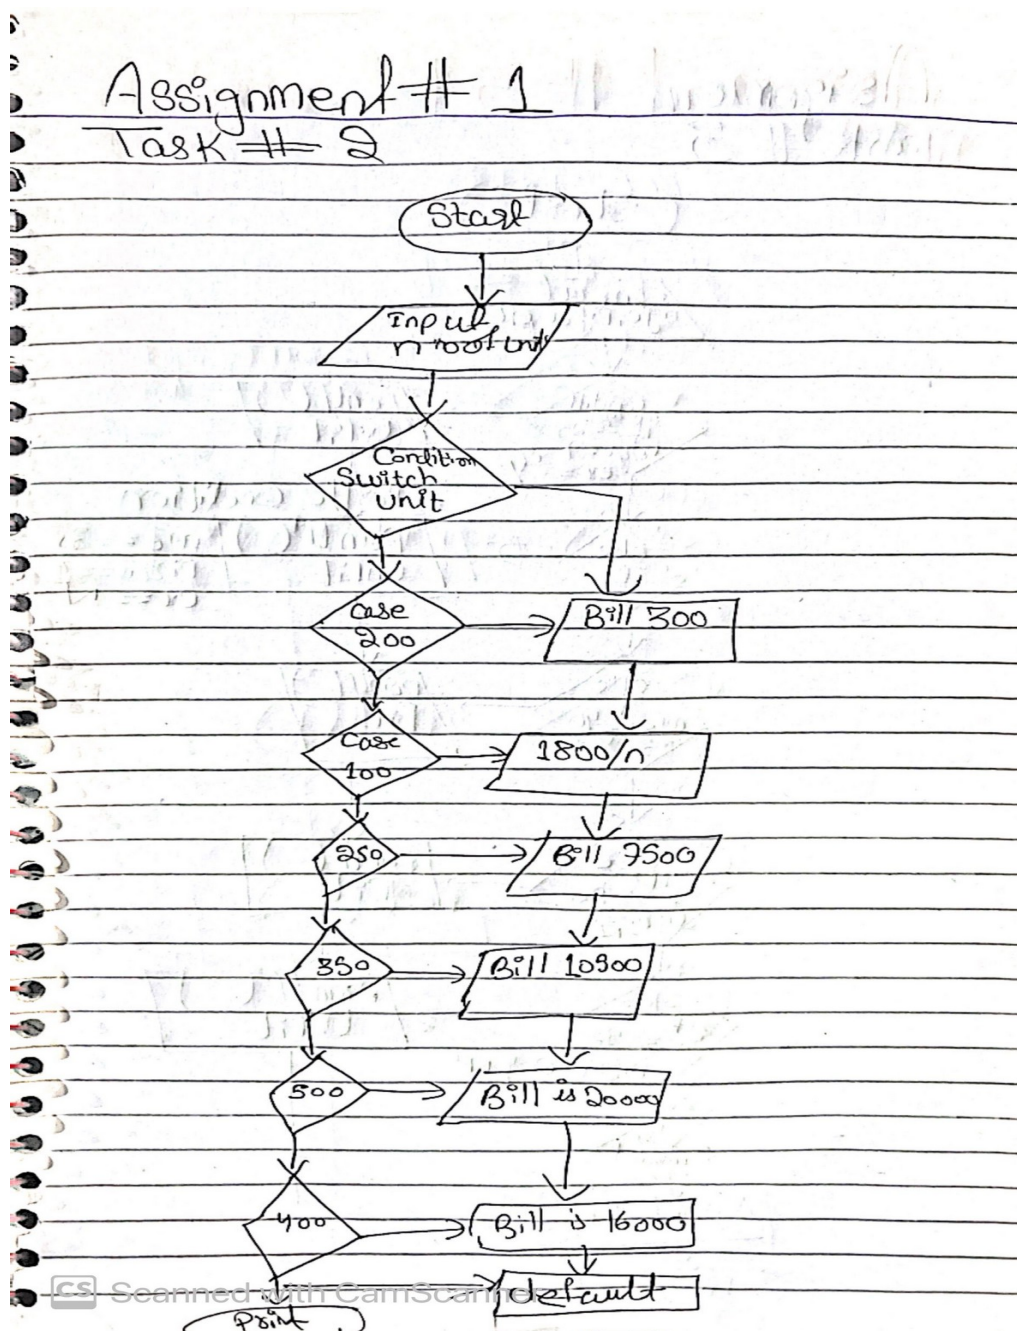 Assignment # 1
Task # 2
Start
Input
n no of units
Condition
Switch
unit
case
200
Bill 300
Case
100
1800/n
250
Bill 7500
350
Bill 10900
500
Bill is 20000
400
Bill is 16000
default
CS Scanned with CamScanner
Print